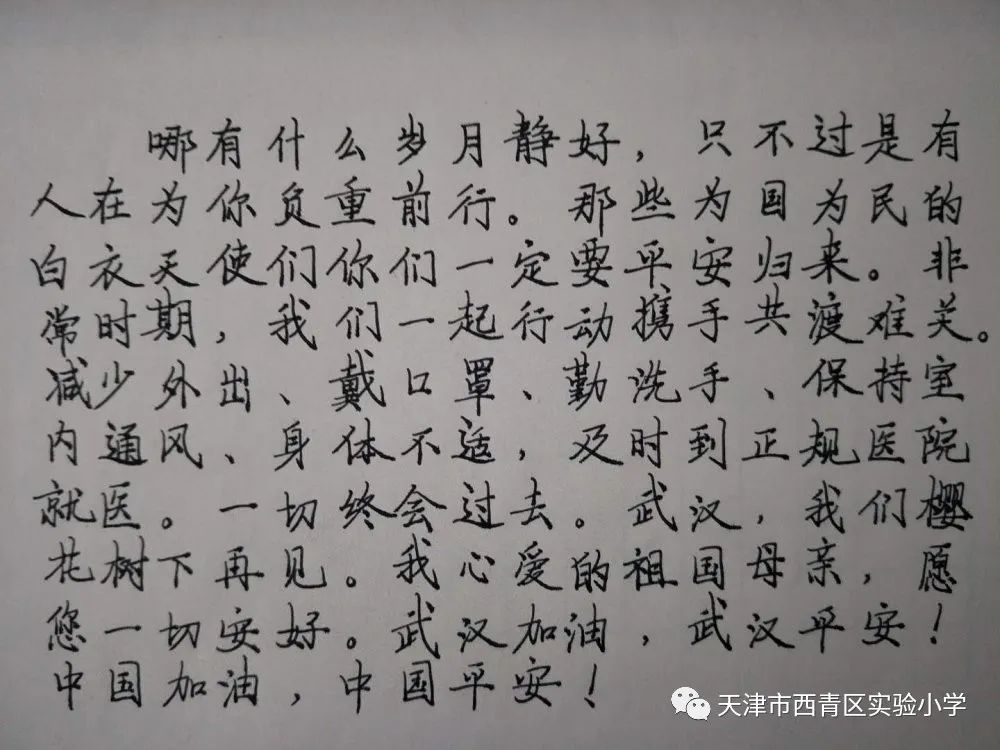 哪有什么岁月静好，只不过是有
人在为你负重前行。那些为国为民的
白衣天使们你们一定要平安归来。非
常时期，我们一起行动携手共渡难关。
减少外出、戴口罩、勤洗手、保持室
内通风、身体不适，及时到正规医院
就医。一切终会过去。武汉，我们樱
花树下再见。我心爱的祖国母亲，愿
您一切安好。武汉加油，武汉平安！
中国加油，中国平安！
天津市西青区实验小学